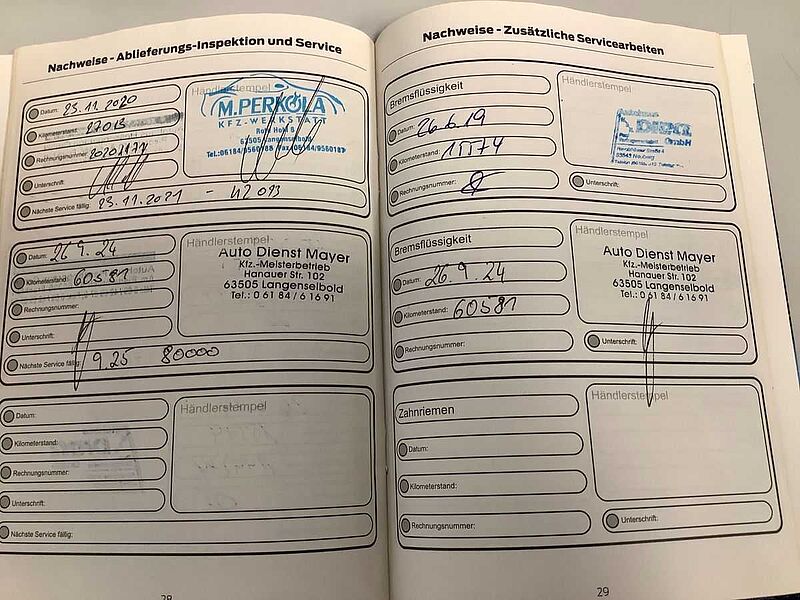 Nachweise - Ablieferungs-Inspektion und Service
Datum: 23.11.2020
Kilometerstand: 27013
Rechnungsnummer:
Unterschrift:
Nächste Service fällig: 23.11.2021 - 42 093
Händlerstempel
M.PERKOLA
KFZ.-WERKSTATT
63505 Langenselbold
Tel.:06184/9560188 Fax:06184/9560187
Datum: 26.9.24
Kilometerstand: 60581
Rechnungsnummer:
Unterschrift:
Nächste Service fällig: 9.25 80000
Händlerstempel
Auto Dienst Mayer
Kfz.-Meisterbetrieb
Hanauer Str. 102
63505 Langenselbold
Tel.: 0 61 84 / 6 16 91
Datum:
Kilometerstand:
Rechnungsnummer:
Unterschrift:
Nächste Service fällig:
Händlerstempel
28
Nachweise - Zusätzliche Servicearbeiten
Bremsflüssigkeit
Datum: 26.6.19
Kilometerstand: 15574
Rechnungsnummer:
Händlerstempel
Autohaus
GmbH
63543 Neuberg
Unterschrift:
Bremsflüssigkeit
Datum: 26.9.24
Kilometerstand: 60581
Rechnungsnummer:
Händlerstempel
Auto Dienst Mayer
Kfz.-Meisterbetrieb
Hanauer Str. 102
63505 Langenselbold
Tel.: 0 61 84 / 6 16 91
Unterschrift:
Zahnriemen
Datum:
Kilometerstand:
Rechnungsnummer:
Händlerstempel
Unterschrift:
29